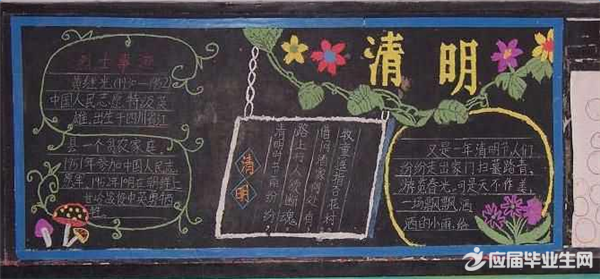 清明
烈士事迹
黄继光(1930-1952)
中国人民志愿特级英
雄,出生于四川中江
县一个贫农家庭,
1951年参加中国人民志
愿军,1952年10月在朝鲜上
甘岭战役中英勇牺
牲。
清明
清明时节雨纷纷,
路上行人欲断魂,
借问酒家何处有,
牧童遥指杏花村。
又是一年清明节,人们
纷纷走出家门扫墓踏青,
游览春光,可是天不作美,
一场飘飘洒
洒的小雨,给
应届毕业生网